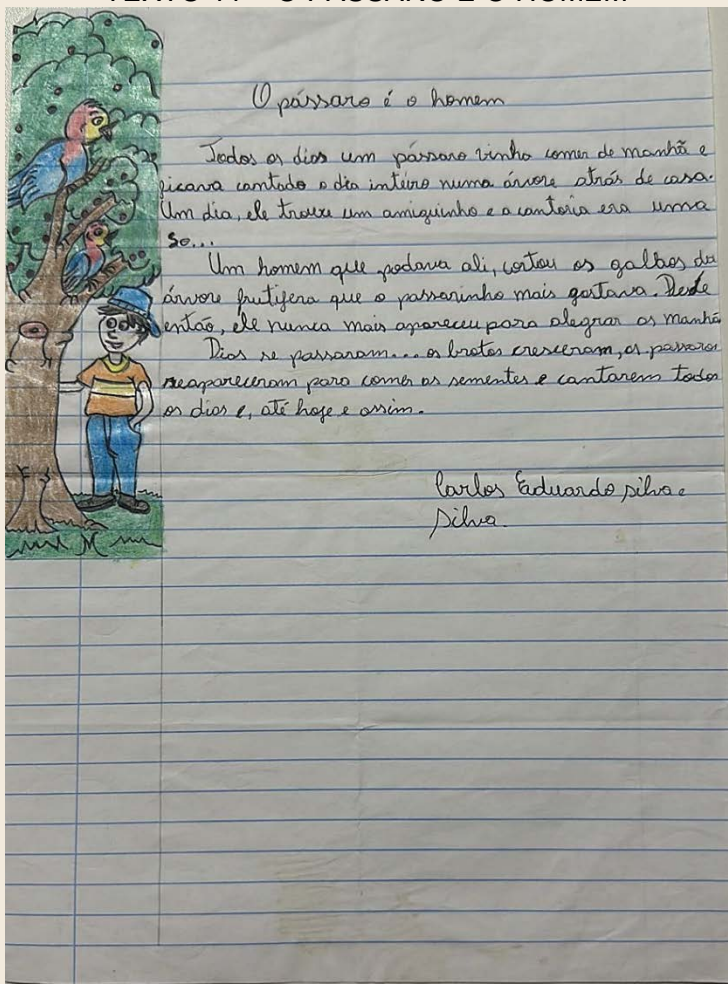 O pássaro é o homem
Todos os dias um pássaro vinha comer de manhã e
ficava cantado o dia inteiro numa árvore atrás de casa.
Um dia, ele trouxe um amiguinho e a cantoria era uma
so...
Um homem que podava ali, cortou os galhos da
árvore frutifera que o passarinho mais gostava. Desde
então, ele nunca mais apareceu para alegrar as manhã
Dias se passaram... os brotos cresceram, os passaros
reapareceram para comer as sementes e cantarem todos
os dias e, até hoje e assim.
Carlos Eduardo silva e
Silva.